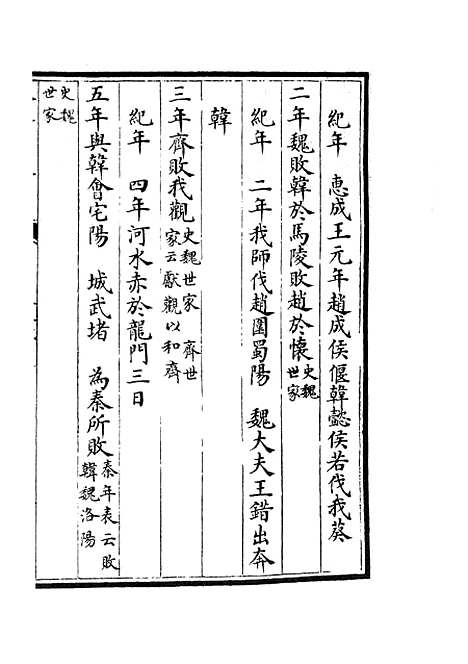 紀年　惠成王元年趙成侯偃韓懿侯若伐我葵
二年魏敗韓於馬陵敗趙於懷史魏世家
紀年　二年我師伐趙圍蜀陽　魏大夫王錯出奔
韓
三年齊敗我觀史魏世家　齊世家云獻觀以和齊
紀年　四年河水赤於龍門三日
五年與韓會宅陽　城武堵　為秦所敗秦年表云敗韓魏洛陽
史魏世家